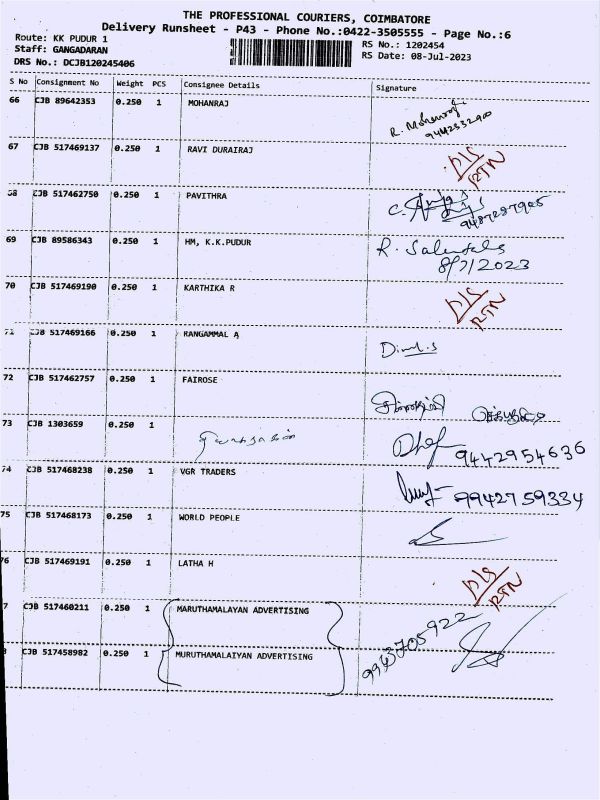 THE PROFESSIONAL COURIERS, COIMBATORE
Delivery Runsheet - P43 - Phone No.:0422-3505555 - Page No.:6
Route: KK PUDUR 1
Staff: GANGADARAN
DRS No.: DCJB120245406
RS No.: 1202454
RS Date: 08-Jul-2023
S No Consignment No Weight PCS Consignee Details Signature
66 CJB 89642353 0.250 1 MOHANRAJ R. Mohanraj
9442332900
67 CJB 517469137 0.250 1 RAVI DURAIRAJ D/S
RTN
68 CJB 517462750 0.250 1 PAVITHRA C.
9487287905
69 CJB 89586343 0.250 1 HM, K.K.PUDUR R.
8/7/2023
70 CJB 517469190 0.250 1 KARTHIKA R D/S
RTN
71 CJB 517469166 0.250 1 RANGAMMAL A
72 CJB 517462757 0.250 1 FAIROSE
73 CJB 1303659 0.250 1 9442954636
74 CJB 517468238 0.250 1 VGR TRADERS 9942759334
75 CJB 517468173 0.250 1 WORLD PEOPLE
76 CJB 517469191 0.250 1 LATHA H D/S
RTN
7 CJB 517460211 0.250 1 MARUTHAMALAYAN ADVERTISING 9943705922
8 CJB 517458982 0.250 1 MURUTHAMALAIYAN ADVERTISING